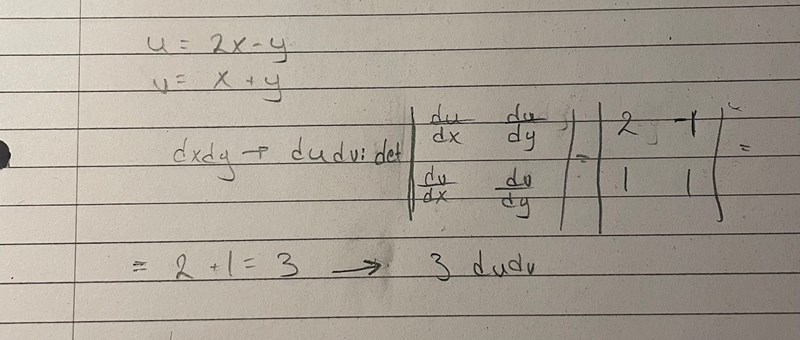 u = 2x-y
v = x + y
dxdy → dudv: det | du/dx du/dy ; dv/dx dv/dy | = | 2 -1 ; 1 1 | =
= 2 + 1 = 3 → 3 dudv